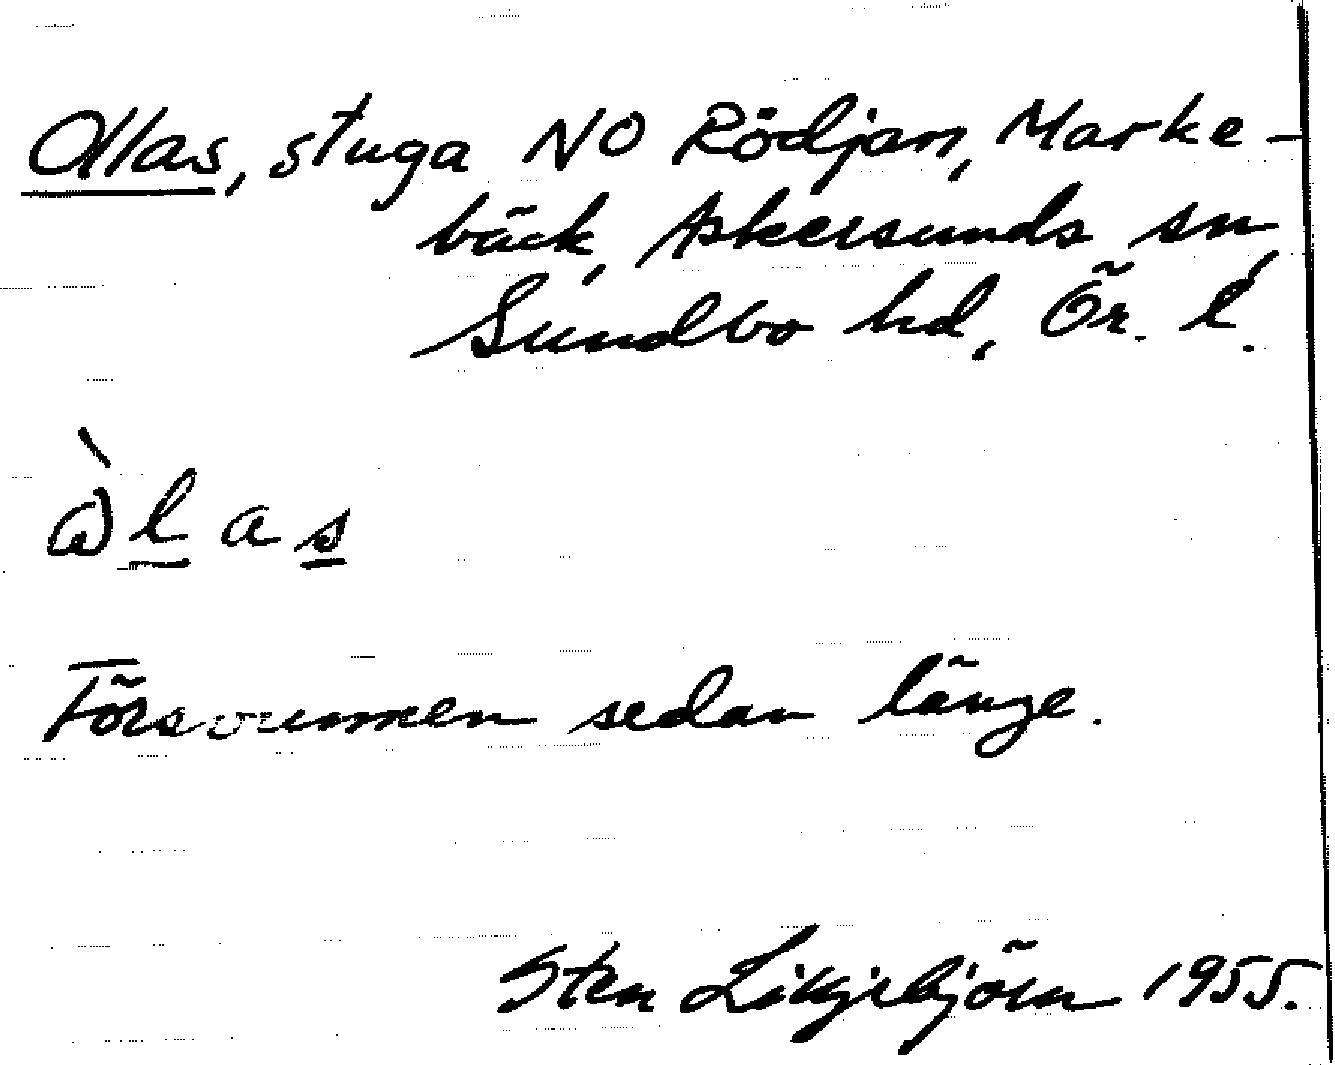 Ollas, stuga NO Rödjan, Marke-
bäck, Askersunds sn,
Sundbo hd, Ör. l.
òlas
Försvunnen sedan länge.
Sten Liljebjörn 1955.